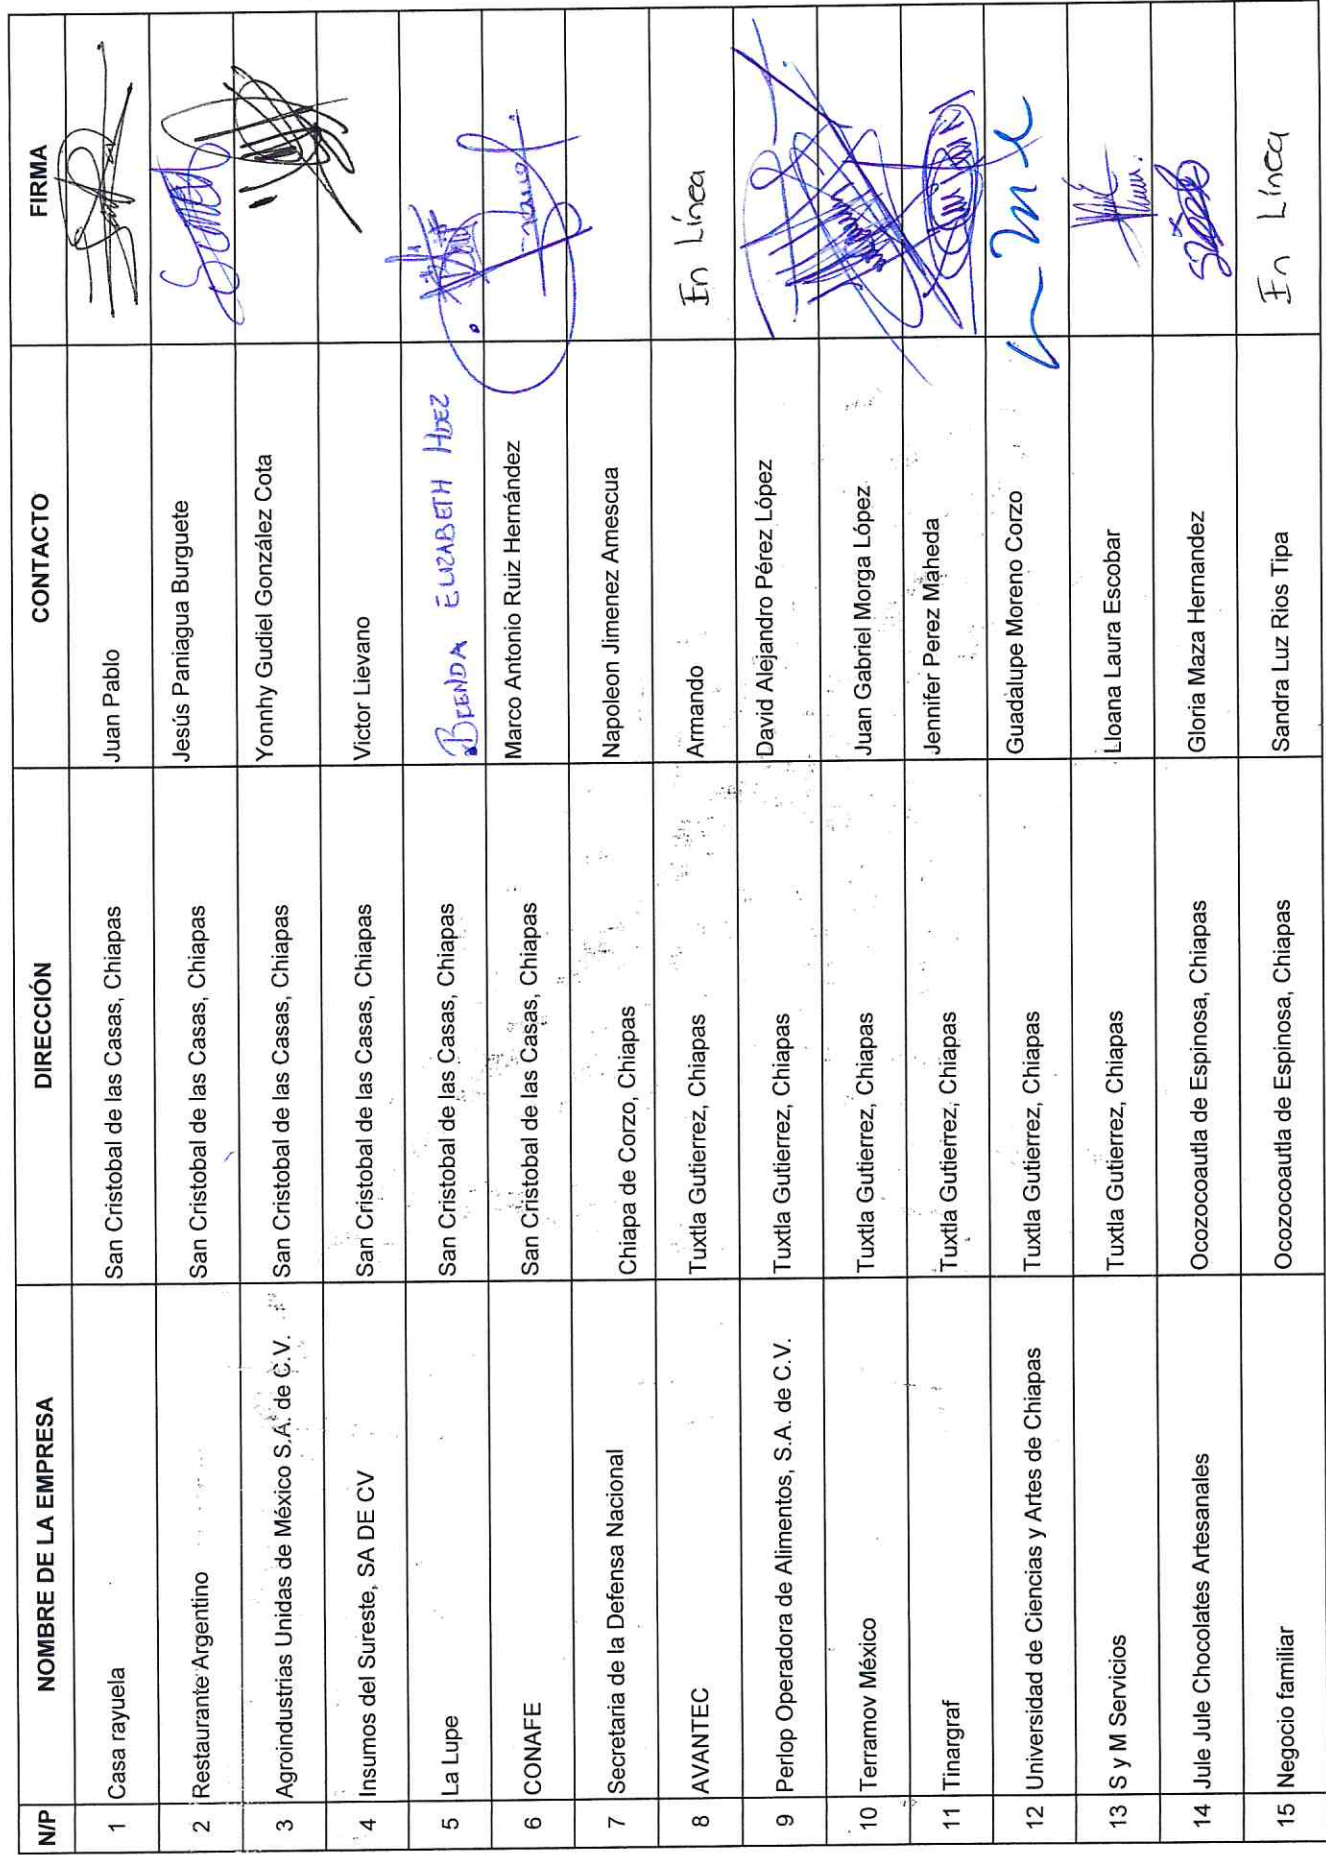 N/P NOMBRE DE LA EMPRESA DIRECCIÓN CONTACTO FIRMA
1 Casa rayuela San Cristobal de las Casas, Chiapas Juan Pablo
2 Restaurante Argentino San Cristobal de las Casas, Chiapas Jesús Paniagua Burguete
3 Agroindustrias Unidas de México S.A. de C.V. San Cristobal de las Casas, Chiapas Yonnhy Gudiel González Cota
4 Insumos del Sureste, SA DE CV San Cristobal de las Casas, Chiapas Victor Lievano
5 La Lupe San Cristobal de las Casas, Chiapas BRENDA ELIZABETH HDEZ
6 CONAFE San Cristobal de las Casas, Chiapas Marco Antonio Ruiz Hernández
7 Secretaria de la Defensa Nacional Chiapa de Corzo, Chiapas Napoleon Jimenez Amescua
8 AVANTEC Tuxtla Gutierrez, Chiapas Armando En Línea
9 Perlop Operadora de Alimentos, S.A. de C.V. Tuxtla Gutierrez, Chiapas David Alejandro Pérez López
10 Terramov México Tuxtla Gutierrez, Chiapas Juan Gabriel Morga López
11 Tinargraf Tuxtla Gutierrez, Chiapas Jennifer Perez Maheda
12 Universidad de Ciencias y Artes de Chiapas Tuxtla Gutierrez, Chiapas Guadalupe Moreno Corzo
13 S y M Servicios Tuxtla Gutierrez, Chiapas Lloana Laura Escobar
14 Jule Jule Chocolates Artesanales Ocozocoautla de Espinosa, Chiapas Gloria Maza Hernandez
15 Negocio familiar Ocozocoautla de Espinosa, Chiapas Sandra Luz Rios Tipa En Línea